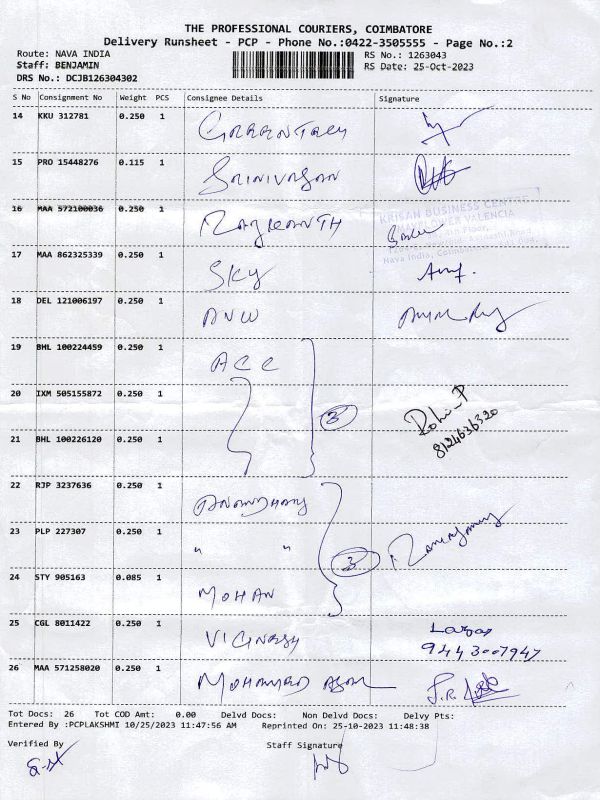 THE PROFESSIONAL COURIERS, COIMBATORE
Delivery Runsheet - PCP - Phone No.:0422-3505555 - Page No.:2
Route: NAVA INDIA RS No.: 1263043
Staff: BENJAMIN RS Date: 25-Oct-2023
DRS No.: DCJB126304302
S No Consignment No Weight PCS Consignee Details Signature
14 KKU 312781 0.250 1
15 PRO 15448276 0.115 1 SRINIVASAN
16 MAA 572100036 0.250 1 RAJKANTH
KRISAN BUSINESS CENTRE
VALENCIA
Floor,
Nava India, Coimbatore
17 MAA 862325339 0.250 1 SKY
18 DEL 121006197 0.250 1
19 BHL 100224459 0.250 1 ACC
20 IXM 505155872 0.250 1 3 Rohi-P
8124636320
21 BHL 100226120 0.250 1
22 RJP 3237636 0.250 1
23 PLP 227307 0.250 1 " " 3
24 STY 905163 0.085 1 MOHAN
25 CGL 8011422 0.250 1 VIGNESH
9443007947
26 MAA 571258020 0.250 1 MOHAMMED
Tot Docs: 26 Tot COD Amt: 0.00 Delvd Docs: Non Delvd Docs: Delvy Pts:
Entered By :PCPLAKSHMI 10/25/2023 11:47:56 AM Reprinted On: 25-10-2023 11:48:38
Verified By Staff Signature